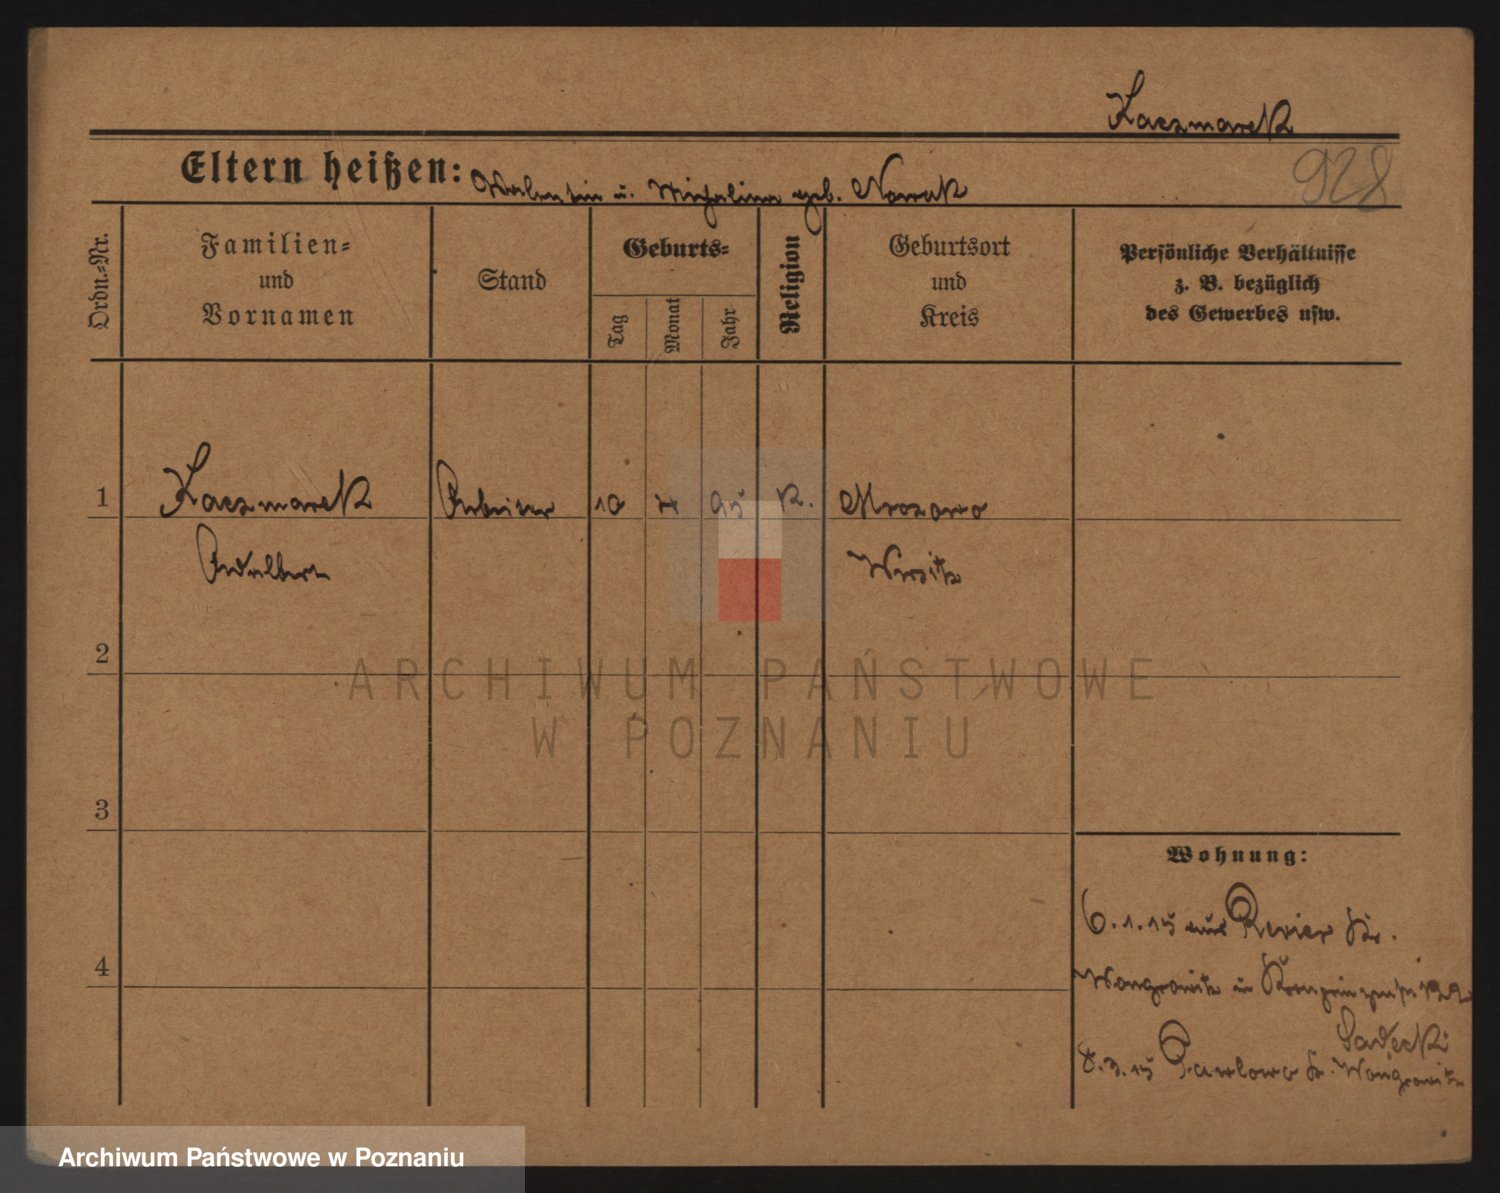 Kaczmarek
928
Eltern heißen: Valentin u. Michalina geb. Nowak
Ordn.-Nr.
Familien-
und
Vornamen
Stand
Geburts-
Tag
Monat
Jahr
Religion
Geburtsort
und
Kreis
Persönliche Verhältnisse
z. B. bezüglich
des Gewerbes usw.
1
Kaczmarek Arbeiter 10 4 95 K. Mrozowo
Adalbert Wirsitz
2
ARCHIWUM PAŃSTWOWE
W POZNANIU
3
Wohnung:
6.1.15 aus Revier Kr.
4
Wongrowitz in Kronprinzenstr 122
Sadecki
8.3.15 Pawlowo Kr. Wongrowitz
Archiwum Państwowe w Poznaniu